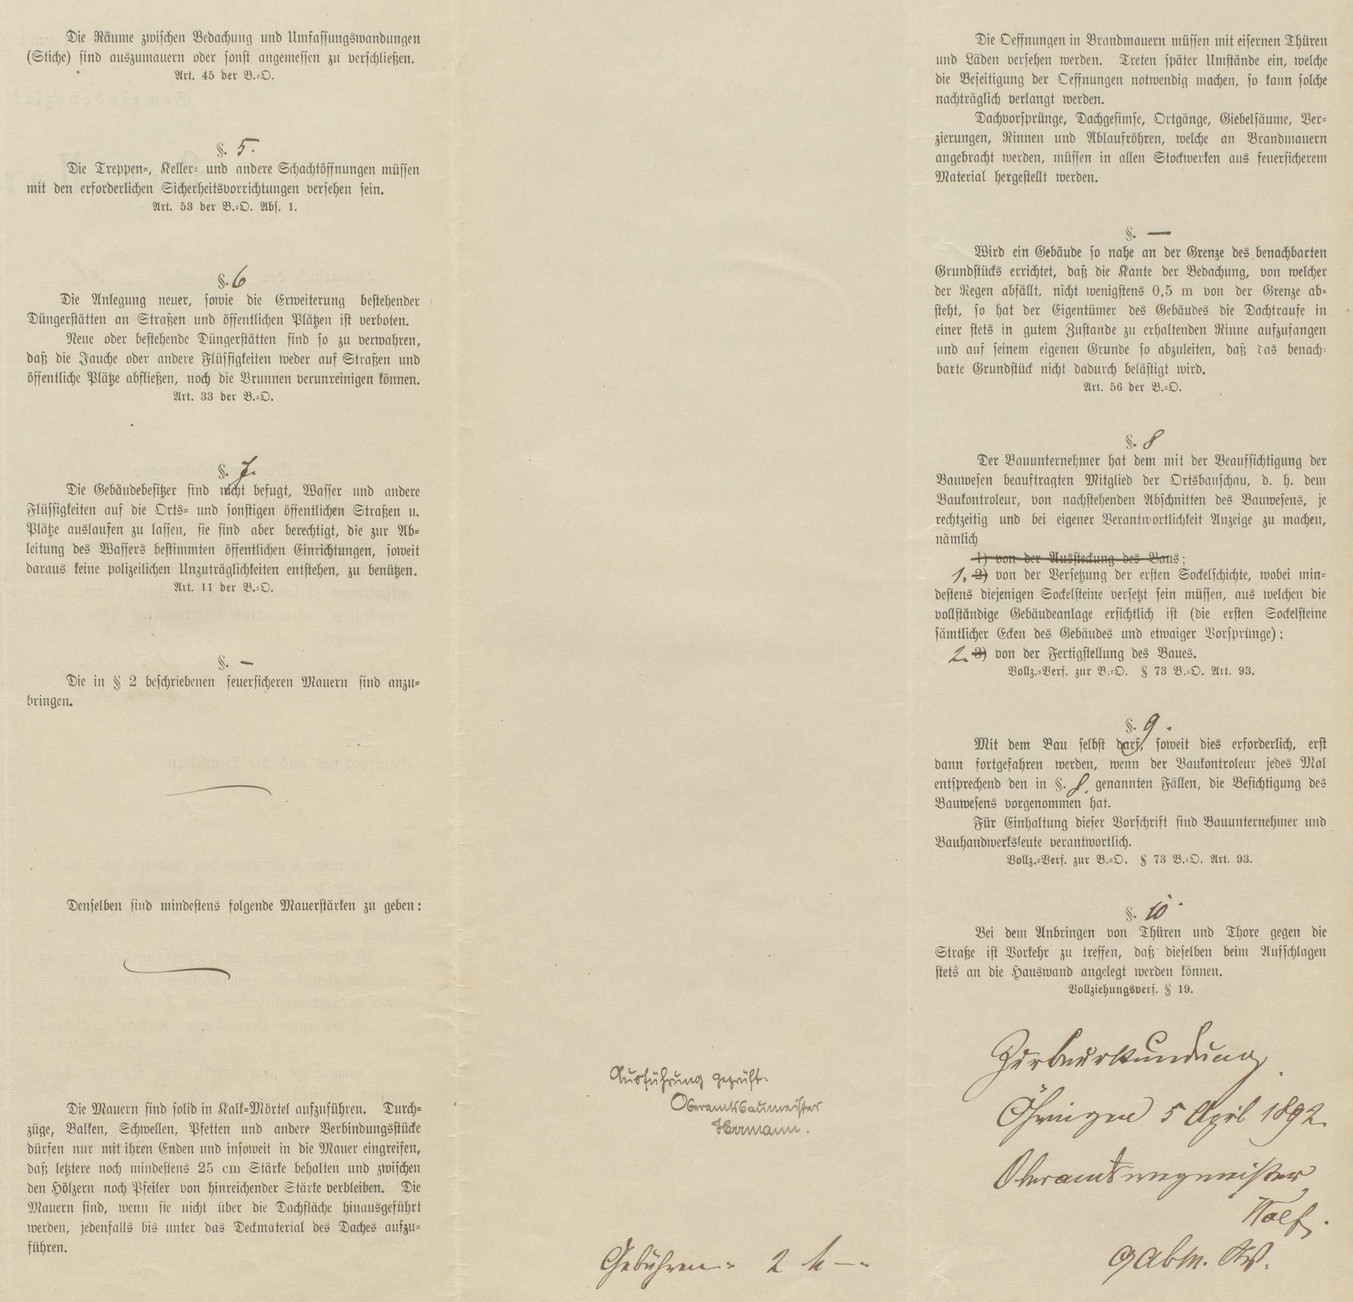 Die Räume zwischen Bedachung und Umfassungswandungen
(Stiche) sind auszumauern oder sonst angemessen zu verschließen.
Art. 45 der B.=O.
§. 5.
Die Treppen=, Keller= und andere Schachtöffnungen müssen
mit den erforderlichen Sicherheitsvorrichtungen versehen sein.
Art. 53 der B.=O. Abs. 1.
§. 6
Die Anlegung neuer, sowie die Erweiterung bestehender
Düngerstätten an Straßen und öffentlichen Plätzen ist verboten.
Neue oder bestehende Düngerstätten sind so zu verwahren,
daß die Jauche oder andere Flüssigkeiten weder auf Straßen und
öffentliche Plätze abfließen, noch die Brunnen verunreinigen können.
Art. 33 der B.=O.
§. 7.
Die Gebäudebesitzer sind nicht befugt, Wasser und andere
Flüssigkeiten auf die Orts= und sonstigen öffentlichen Straßen u.
Plätze auslaufen zu lassen, sie sind aber berechtigt, die zur Ab=
leitung des Wassers bestimmten öffentlichen Einrichtungen, soweit
daraus keine polizeilichen Unzuträglichkeiten entstehen, zu benützen.
Art. 11 der B.=O.
§. —
Die in § 2 beschriebenen feuersicheren Mauern sind anzu=
bringen.
Denselben sind mindestens folgende Mauerstärken zu geben:
Die Mauern sind solid in Kalk=Mörtel aufzuführen. Durch=
züge, Balken, Schwellen, Pfetten und andere Verbindungsstücke
dürfen nur mit ihren Enden und insoweit in die Mauer eingreifen,
daß letztere noch mindestens 25 cm Stärke behalten und zwischen
den Hölzern noch Pfeiler von hinreichender Stärke verbleiben. Die
Mauern sind, wenn sie nicht über die Dachfläche hinausgeführt
werden, jedenfalls bis unter das Deckmaterial des Daches aufzu=
führen.
Ausführung geprüft.
Oberamtsbaumeister
Hermann.
Gebühren 2 M —
Die Oeffnungen in Brandmauern müssen mit eisernen Thüren
und Läden versehen werden. Treten später Umstände ein, welche
die Beseitigung der Oeffnungen notwendig machen, so kann solche
nachträglich verlangt werden.
Dachvorsprünge, Dachgesimse, Ortgänge, Giebelsäume, Ver=
zierungen, Rinnen und Ablaufröhren, welche an Brandmauern
angebracht werden, müssen in allen Stockwerken aus feuersicherem
Material hergestellt werden.
§. —
Wird ein Gebäude so nahe an der Grenze des benachbarten
Grundstücks errichtet, daß die Kante der Bedachung, von welcher
der Regen abfällt, nicht wenigstens 0,5 m von der Grenze ab=
steht, so hat der Eigentümer des Gebäudes die Dachtraufe in
einer stets in gutem Zustande zu erhaltenden Rinne aufzufangen
und auf seinem eigenen Grunde so abzuleiten, daß das benach=
barte Grundstück nicht dadurch belästigt wird.
Art. 56 der B.=O.
§. 8
Der Bauunternehmer hat dem mit der Beaufsichtigung der
Bauwesen beauftragten Mitglied der Ortsbauschau, d. h. dem
Baukontroleur, von nachstehenden Abschnitten des Bauwesens, je
rechtzeitig und bei eigener Verantwortlichkeit Anzeige zu machen,
nämlich
1) von der Aussteckung des Baus;
1. 2) von der Versetzung der ersten Sockelschichte, wobei min=
destens diejenigen Sockelsteine versetzt sein müssen, aus welchen die
vollständige Gebäudeanlage ersichtlich ist (die ersten Sockelsteine
sämtlicher Ecken des Gebäudes und etwaiger Vorsprünge);
2. 3) von der Fertigstellung des Baues.
Vollz.=Verf. zur B.=O. § 73 B.=O. Art. 93.
§. 9.
Mit dem Bau selbst darf, soweit dies erforderlich, erst
dann fortgefahren werden, wenn der Baukontroleur jedes Mal
entsprechend den in §. 8. genannten Fällen, die Besichtigung des
Bauwesens vorgenommen hat.
Für Einhaltung dieser Vorschrift sind Bauunternehmer und
Bauhandwerksleute verantwortlich.
Vollz.=Verf. zur B.=O. § 73 B.=O. Art. 93.
§. 10.
Bei dem Anbringen von Thüren und Thore gegen die
Straße ist Vorkehr zu treffen, daß dieselben beim Aufschlagen
stets an die Hauswand angelegt werden können.
Vollziehungsverf. § 19.
Zur Beurkundung
Öhringen 5 April 1892.
Oberamtswegmeister